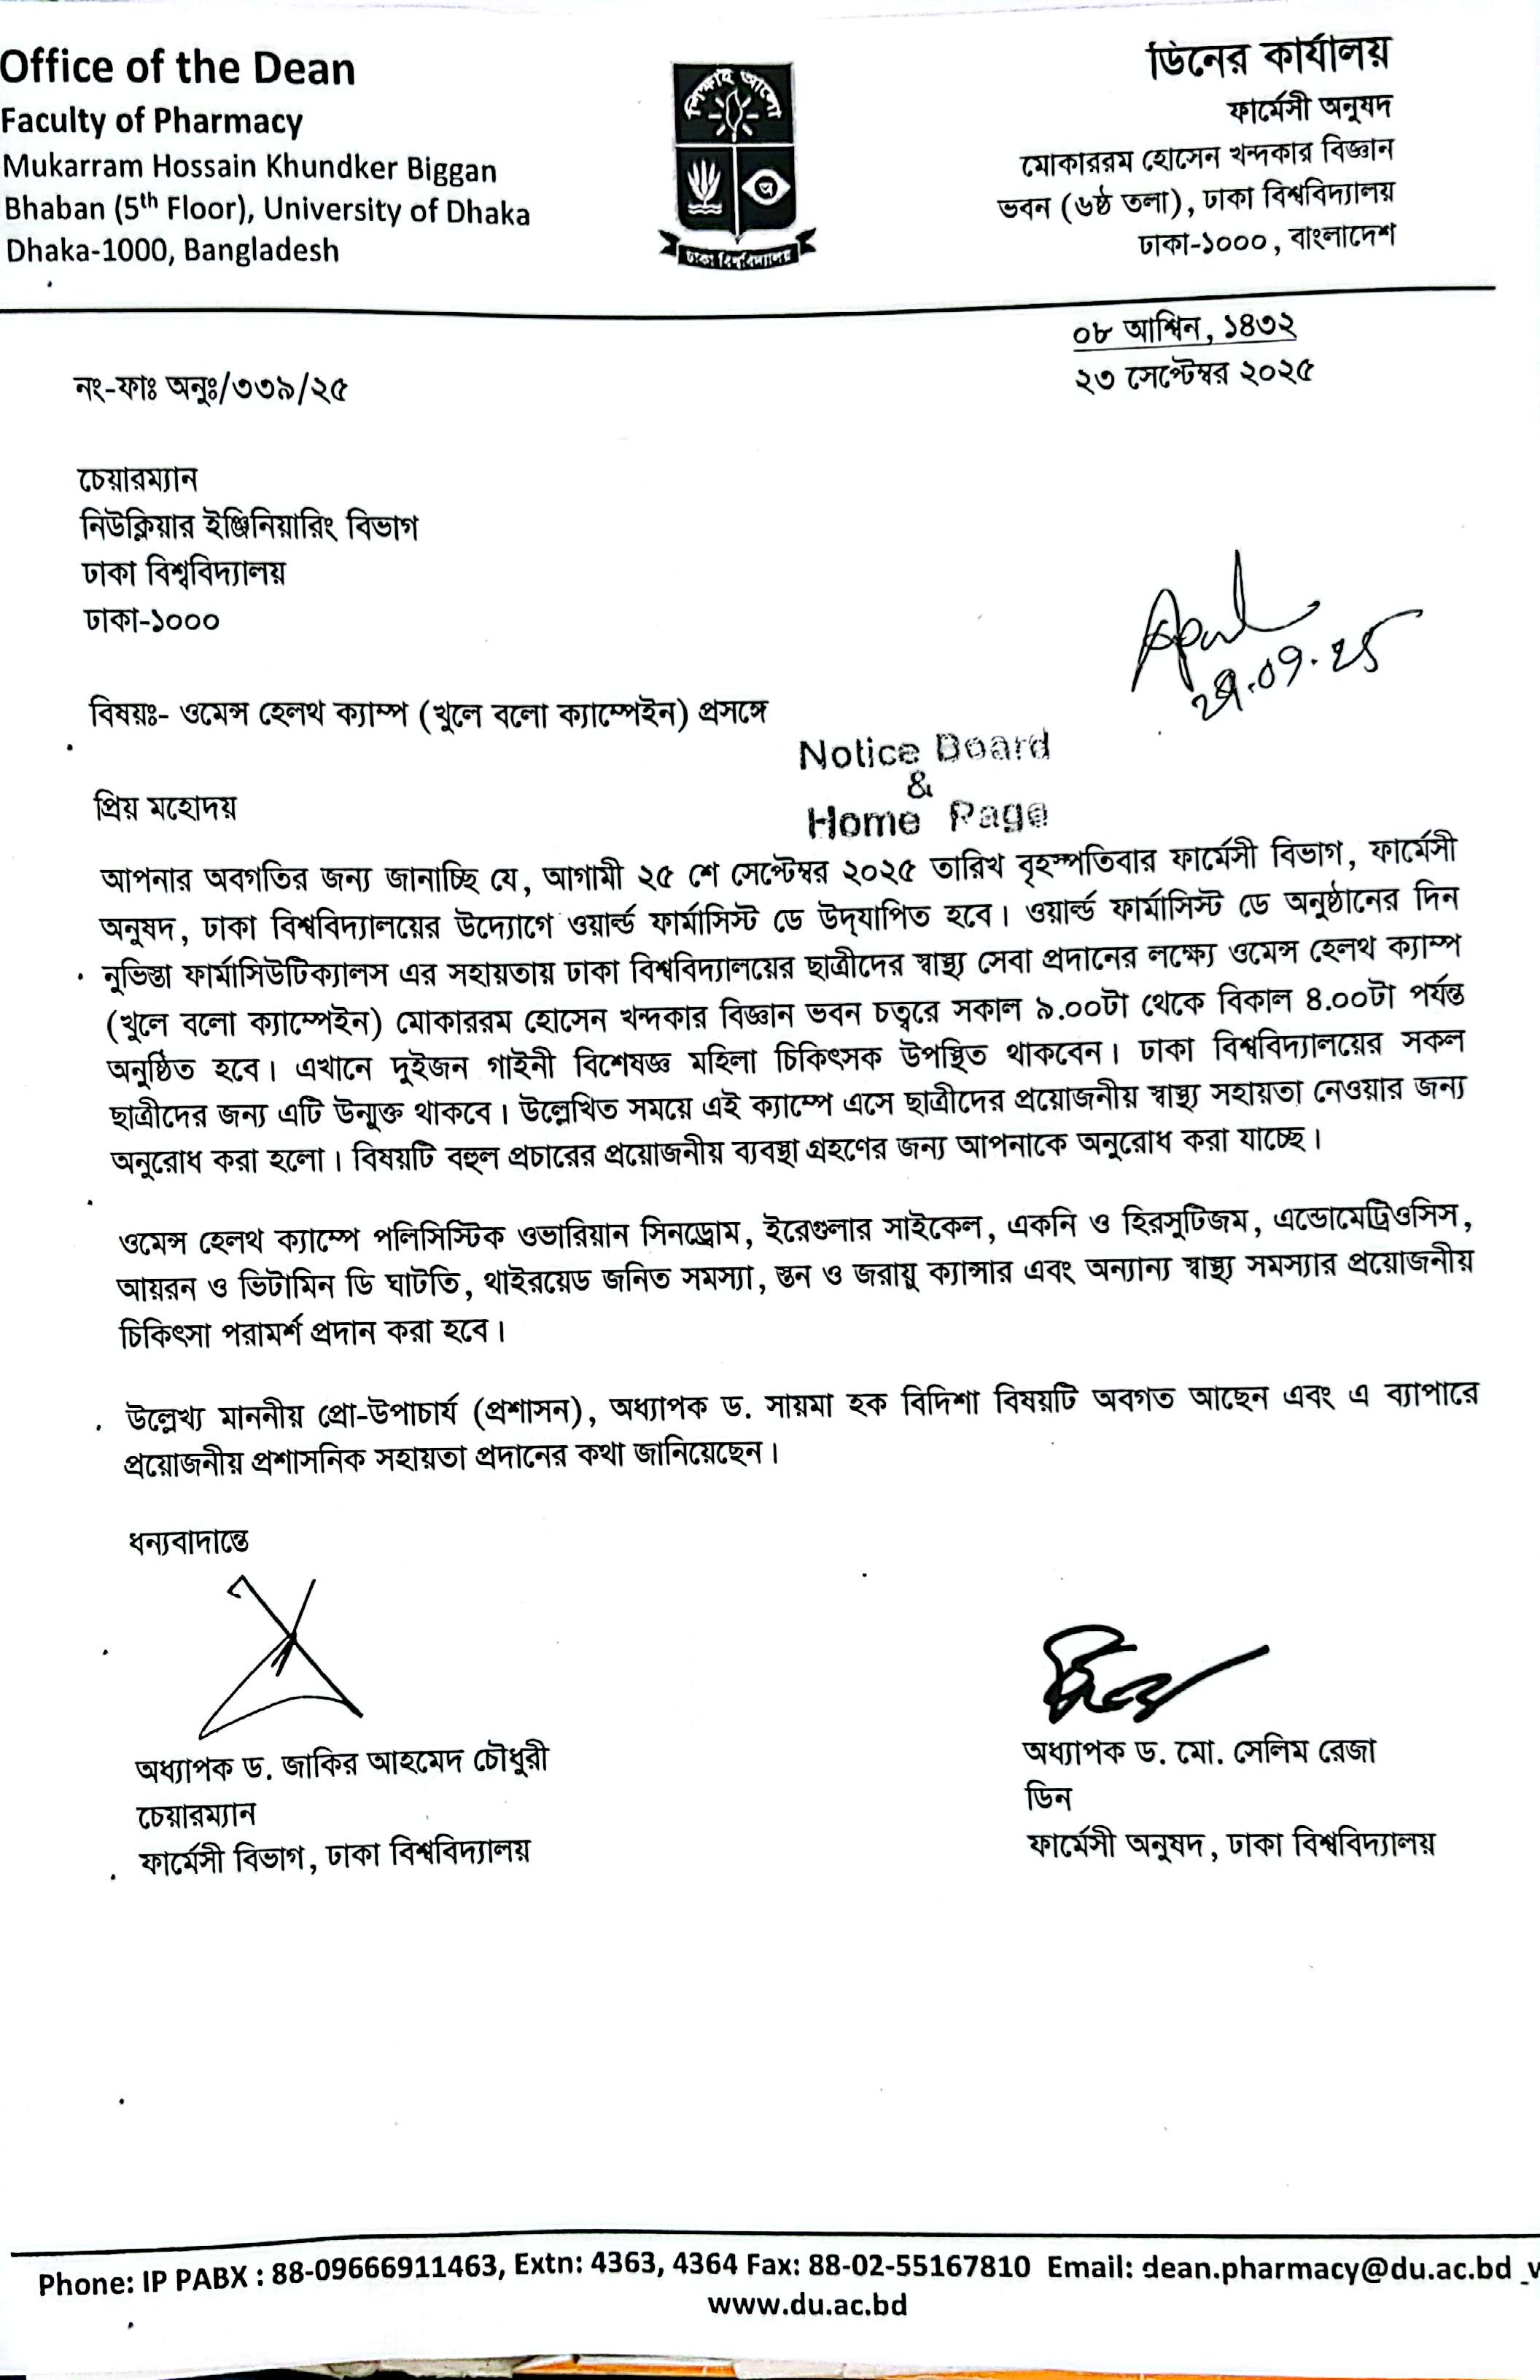 Office of the Dean
Faculty of Pharmacy
Mukarram Hossain Khundker Biggan
Bhaban (5th Floor), University of Dhaka
Dhaka-1000, Bangladesh
শিক্ষাই আলো
ঢাকা বিশ্ববিদ্যালয়
ডিনের কার্যালয়
ফার্মেসী অনুষদ
মোকাররম হোসেন খন্দকার বিজ্ঞান
ভবন (৬ষ্ঠ তলা), ঢাকা বিশ্ববিদ্যালয়
ঢাকা-১০০০, বাংলাদেশ
০৮ আশ্বিন, ১৪৩২
২৩ সেপ্টেম্বর ২০২৫
নং-ফাঃ অনুঃ/৩৩৯/২৫
চেয়ারম্যান
নিউক্লিয়ার ইঞ্জিনিয়ারিং বিভাগ
ঢাকা বিশ্ববিদ্যালয়
ঢাকা-১০০০
বিষয়ঃ- ওমেন্স হেলথ ক্যাম্প (খুলে বলো ক্যাম্পেইন) প্রসঙ্গে
Notice Board
&
Home Page
প্রিয় মহোদয়
আপনার অবগতির জন্য জানাচ্ছি যে, আগামী ২৫ শে সেপ্টেম্বর ২০২৫ তারিখ বৃহস্পতিবার ফার্মেসী বিভাগ, ফার্মেসী
অনুষদ, ঢাকা বিশ্ববিদ্যালয়ের উদ্যোগে ওয়ার্ল্ড ফার্মাসিস্ট ডে উদ্‌যাপিত হবে। ওয়ার্ল্ড ফার্মাসিস্ট ডে অনুষ্ঠানের দিন
নুভিস্তা ফার্মাসিউটিক্যালস এর সহায়তায় ঢাকা বিশ্ববিদ্যালয়ের ছাত্রীদের স্বাস্থ্য সেবা প্রদানের লক্ষ্যে ওমেন্স হেলথ ক্যাম্প
(খুলে বলো ক্যাম্পেইন) মোকাররম হোসেন খন্দকার বিজ্ঞান ভবন চত্বরে সকাল ৯.০০টা থেকে বিকাল ৪.০০টা পর্যন্ত
অনুষ্ঠিত হবে। এখানে দুইজন গাইনী বিশেষজ্ঞ মহিলা চিকিৎসক উপস্থিত থাকবেন। ঢাকা বিশ্ববিদ্যালয়ের সকল
ছাত্রীদের জন্য এটি উন্মুক্ত থাকবে। উল্লেখিত সময়ে এই ক্যাম্পে এসে ছাত্রীদের প্রয়োজনীয় স্বাস্থ্য সহায়তা নেওয়ার জন্য
অনুরোধ করা হলো। বিষয়টি বহুল প্রচারের প্রয়োজনীয় ব্যবস্থা গ্রহণের জন্য আপনাকে অনুরোধ করা যাচ্ছে।
ওমেন্স হেলথ ক্যাম্পে পলিসিস্টিক ওভারিয়ান সিনড্রোম, ইরেগুলার সাইকেল, একনি ও হিরসুটিজম, এন্ডোমেট্রিওসিস,
আয়রন ও ভিটামিন ডি ঘাটতি, থাইরয়েড জনিত সমস্যা, স্তন ও জরায়ু ক্যান্সার এবং অন্যান্য স্বাস্থ্য সমস্যার প্রয়োজনীয়
চিকিৎসা পরামর্শ প্রদান করা হবে।
উল্লেখ্য মাননীয় প্রো-উপাচার্য (প্রশাসন), অধ্যাপক ড. সায়মা হক বিদিশা বিষয়টি অবগত আছেন এবং এ ব্যাপারে
প্রয়োজনীয় প্রশাসনিক সহায়তা প্রদানের কথা জানিয়েছেন।
ধন্যবাদান্তে
অধ্যাপক ড. জাকির আহমেদ চৌধুরী
চেয়ারম্যান
ফার্মেসী বিভাগ, ঢাকা বিশ্ববিদ্যালয়
অধ্যাপক ড. মো. সেলিম রেজা
ডিন
ফার্মেসী অনুষদ, ঢাকা বিশ্ববিদ্যালয়
Phone: IP PABX : 88-09666911463, Extn: 4363, 4364 Fax: 88-02-55167810 Email: dean.pharmacy@du.ac.bd
www.du.ac.bd